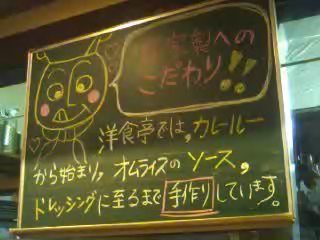 自家製への
こだわり!!
洋食亭では,カレールー
から始まり,オムライスのソース,
ドレッシングに至るまで手作りしています。